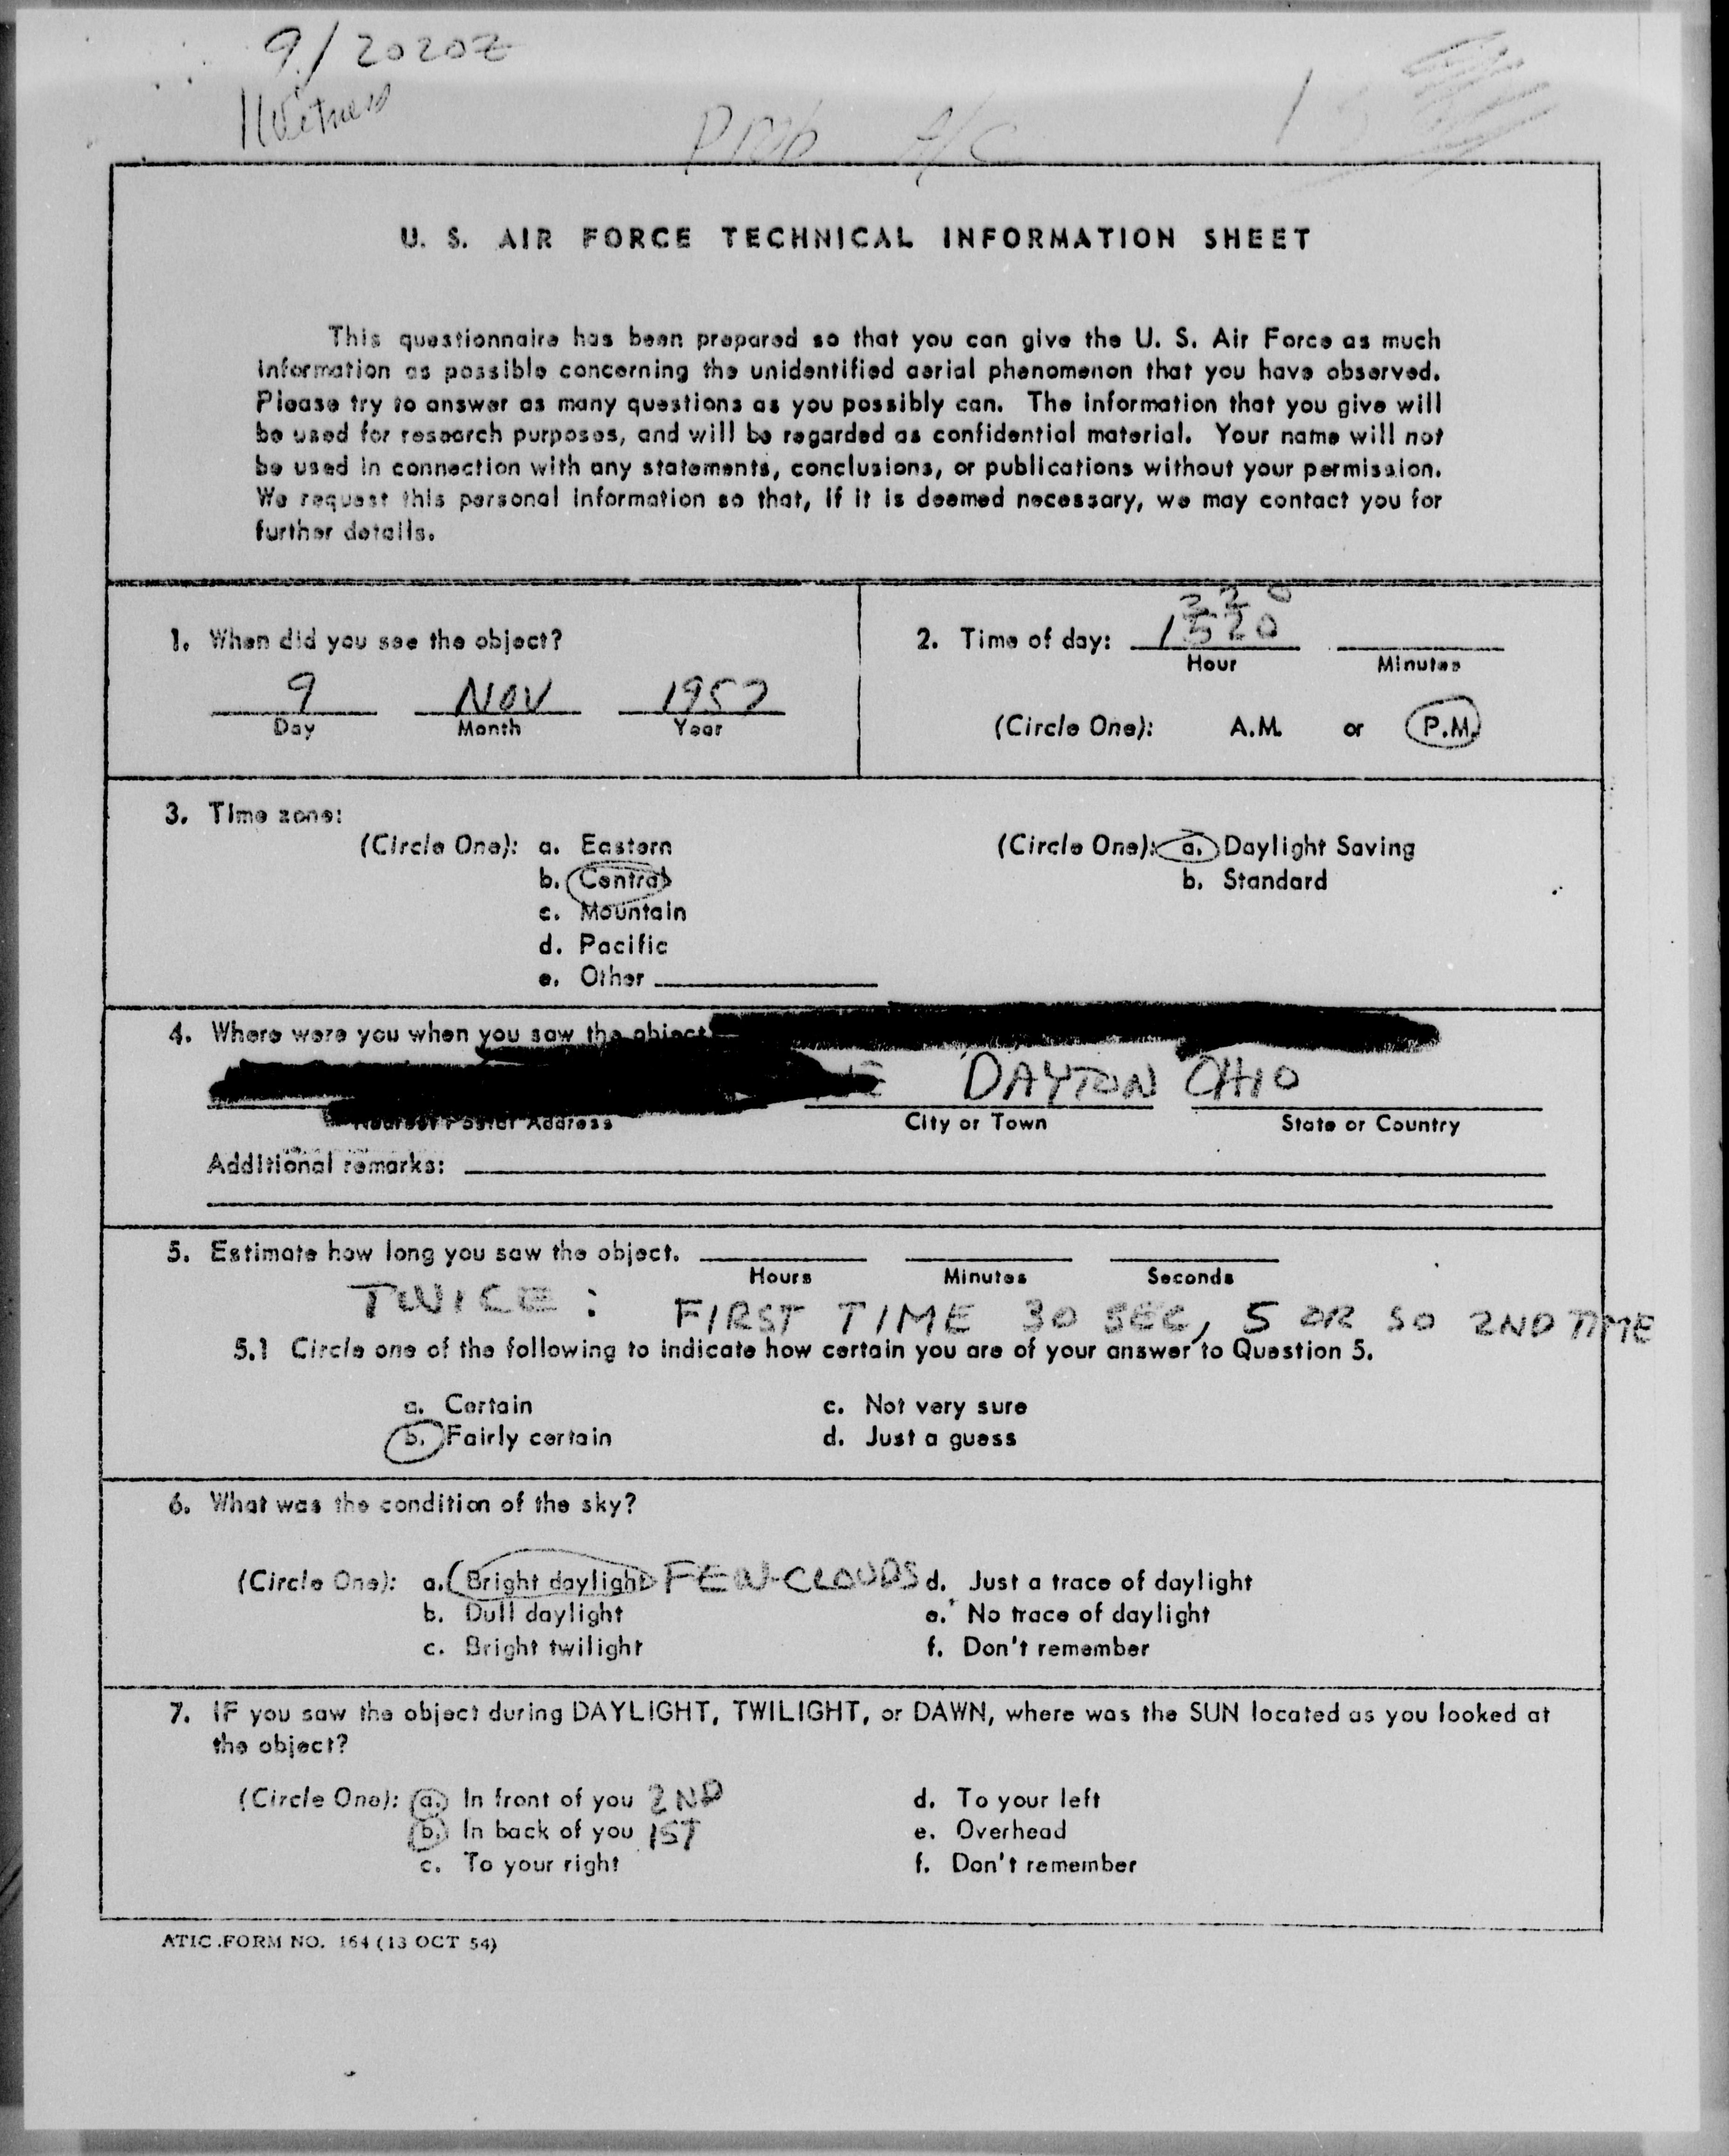 9/2020Z
1 Witness
Prob A/C
U. S. AIR FORCE TECHNICAL INFORMATION SHEET
This questionnaire has been prepared so that you can give the U. S. Air Force as much
information as possible concerning the unidentified aerial phenomenon that you have observed.
Please try to answer as many questions as you possibly can. The information that you give will
be used for research purposes, and will be regarded as confidential material. Your name will not
be used in connection with any statements, conclusions, or publications without your permission.
We request this personal information so that, if it is deemed necessary, we may contact you for
further details.
1. When did you see the object?
9 NOV 1957
Day Month Year
2. Time of day: 1520
Hour Minutes
(Circle One): A.M. or P.M.
3. Time zone:
(Circle One): a. Eastern
b. Central
c. Mountain
d. Pacific
e. Other
(Circle One): a. Daylight Saving
b. Standard
4. Where were you when you saw the object
DAYTON OHIO
Nearest Postal Address City or Town State or Country
Additional remarks:
5. Estimate how long you saw the object.
Hours Minutes Seconds
TWICE: FIRST TIME 30 SEC, 5 OR SO 2ND TIME
5.1 Circle one of the following to indicate how certain you are of your answer to Question 5.
a. Certain c. Not very sure
b. Fairly certain d. Just a guess
6. What was the condition of the sky?
(Circle One): a. Bright daylight FEW CLOUDS d. Just a trace of daylight
b. Dull daylight e. No trace of daylight
c. Bright twilight f. Don't remember
7. IF you saw the object during DAYLIGHT, TWILIGHT, or DAWN, where was the SUN located as you looked at
the object?
(Circle One): a. In front of you 2ND d. To your left
b. In back of you 1ST e. Overhead
c. To your right f. Don't remember
ATIC FORM NO. 164 (13 OCT 54)